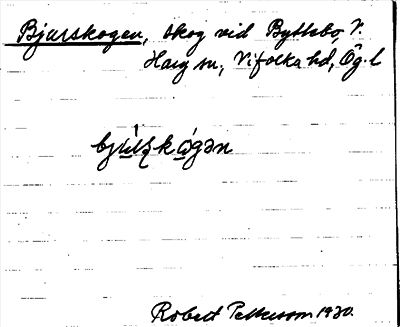 Bjurskogen, skog vid Byttebo, V.
Harg sn, Vifolka hd, Ög.l
Robert Pettersson 1930.